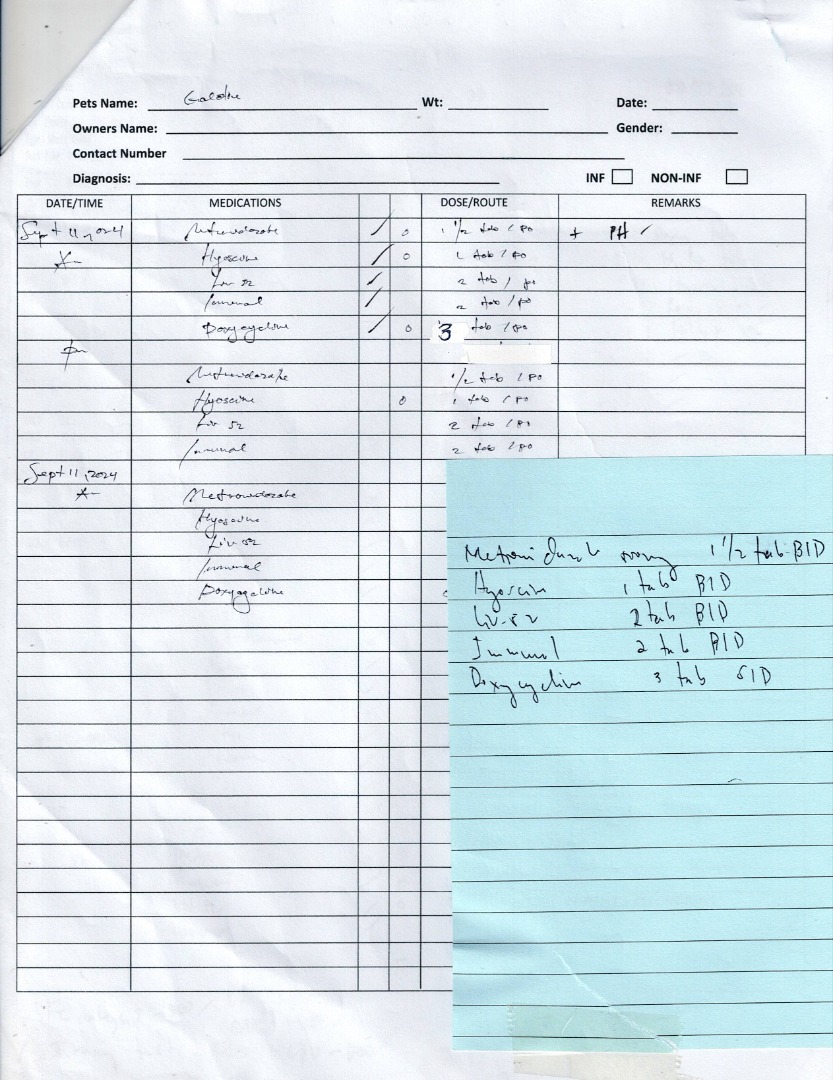 Pets Name: Wt: Date:
Owners Name: Gender:
Contact Number
Diagnosis: INF NON-INF
DATE/TIME MEDICATIONS DOSE/ROUTE REMARKS
Sept 11, 2024 1 1/2 tab / po + PH
Hyoscine 1 tab / po
Liv 52 2 tab / po
2 tab / po
Doxycycline 3 tab / po
1/2 tab / po
Hyoscine 1 tab / po
Liv 52 2 tab / po
2 tab / po
Sept 11, 2024
Hyoscine
Liv 52
Doxycycline
1 1/2 tab BID
Hyoscin 1 tab BID
Liv-52 2 tab BID
Immunol 2 tab BID
Doxycyclin 3 tab SID